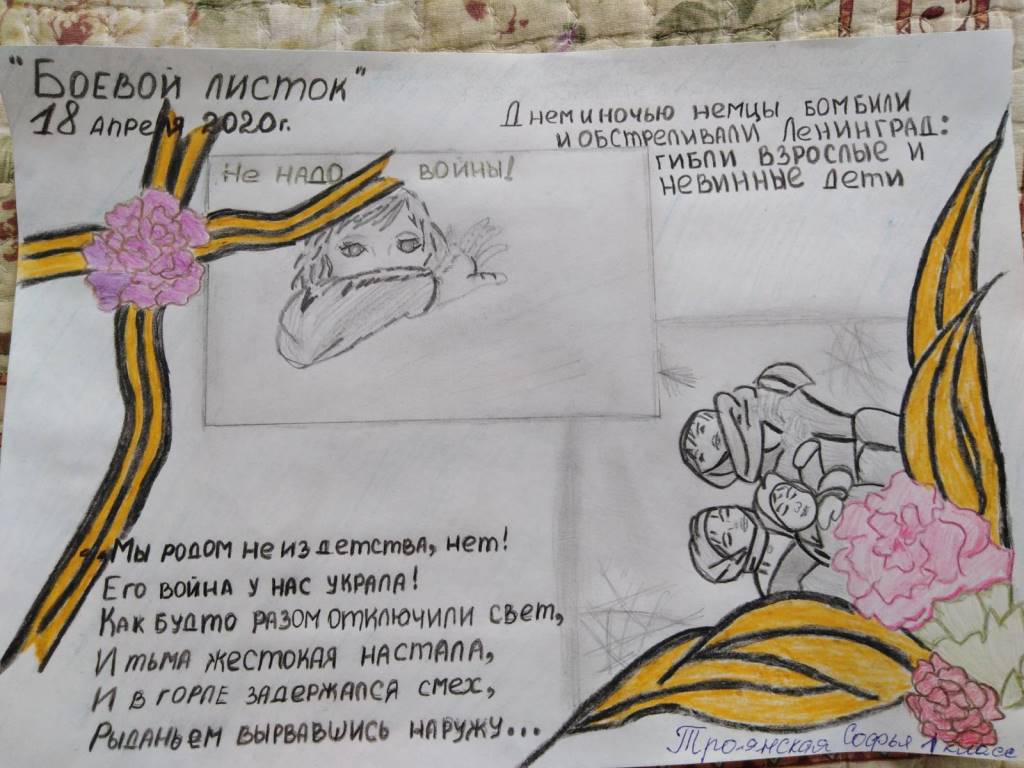 "Боевой листок"
18 апреля 2020г.
Днем и ночью немцы бомбили
и обстреливали Ленинград:
гибли взрослые и
невинные дети
Не надо войны!
Мы родом не из детства, нет!
Его война у нас украла!
Как будто разом отключили свет,
И тьма жестокая настала,
И в горле задержался смех,
Рыданьем вырвавшись наружу...
Троянская Софья 1 класс